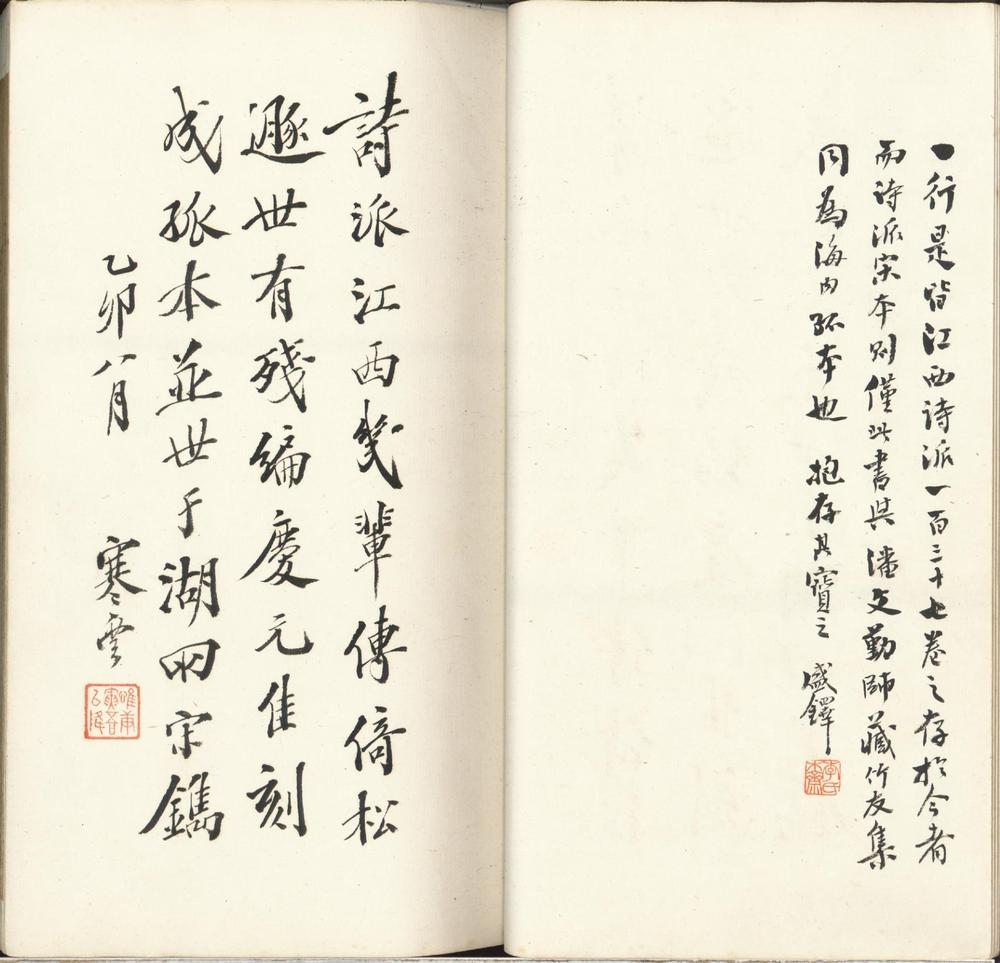 一行是皆江西詩派一百三十七卷之存於今者
而詩派宋本則僅此書與潘文勤師藏竹友集
同為海内孤本也 抱存其寶之 盛鐸
李氏木齋
詩派江西幾輩傳倚松
遯世有殘編慶元隹刻
成孤本並世于湖兩宋鐫
乙卯八月 寒雲
唯庚寅吾以降